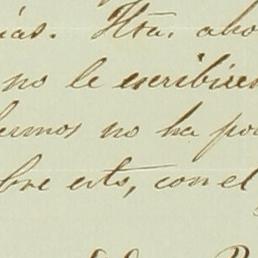 ías. Hta. aho
no le escribire
ermos no ha po
bre esto, con el